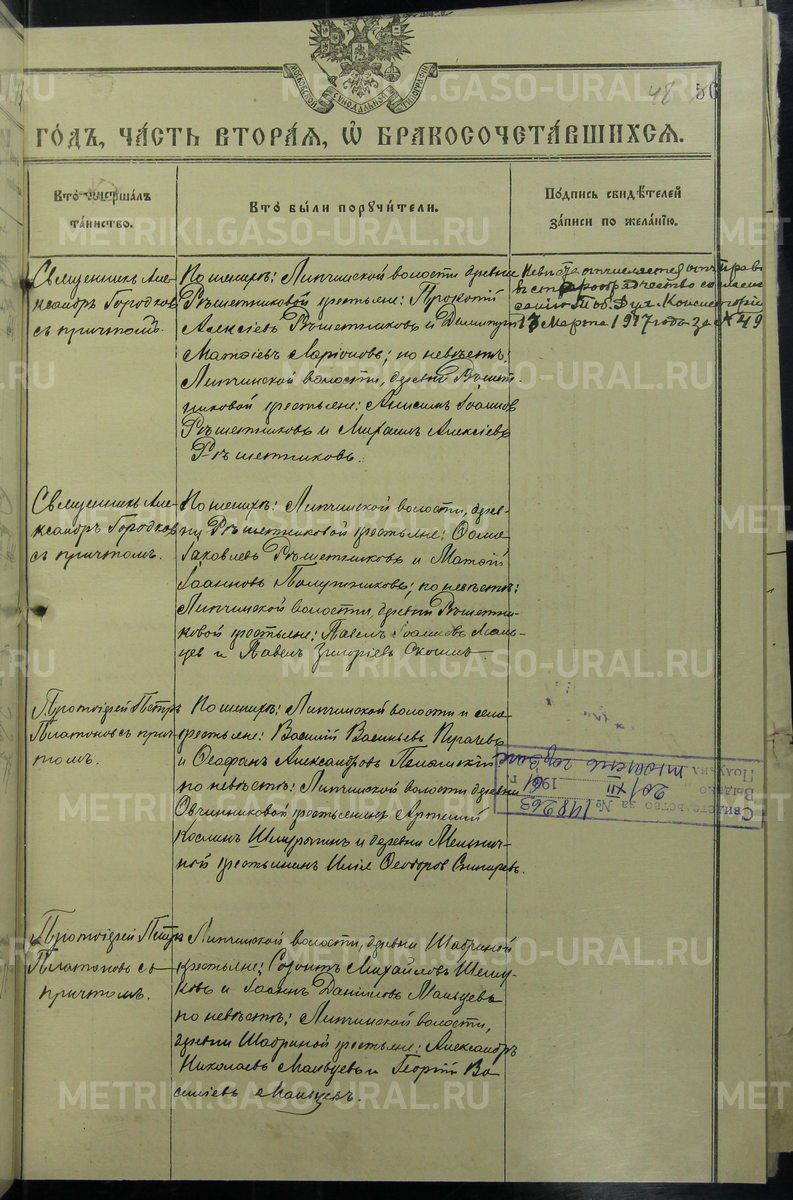 МОСКОВСКОЙ СѴНОДАЛЬНОЙ ТИПОГРАФІИ
48 56
ГОДЪ, ЧАСТЬ ВТОРАЯ, Ѽ БРАКОСОЧЕТАВШИХСЯ.
Кто совершалъ
таинство.
Кто были поручители.
Подпись свидѣтелей
записи по желанію.
Священникъ Але-
ксандръ Городковъ
съ причтомъ.
По женихѣ: Липчинской волости деревни
Рѣшетниковой крестьяне: Прокопій
Алексіевъ Рѣшетниковъ и Димитрій
Матѳіевъ Ларіоновъ; по невѣстѣ:
Липчинской волости, деревни Рѣшет-
никовой крестьяне: Анисимъ Іоанновъ
Рѣшетниковъ и Михаилъ Алексіевъ
Рѣшетниковъ.
Невѣста отчисляется отъ прав.
въ старообрядчество согласно
Дух. Консисторіи
13 Марта 1917 года за № 49
Священникъ Але-
ксандръ Городковъ
съ причтомъ.
По женихѣ: Липчинской волости, дерев-
ни Рѣшетниковой крестьяне: Ѳома
Іаковлевъ Рѣшетниковъ и Матѳій
Іоанновъ; по невѣстѣ:
Липчинской волости, деревни Рѣшетни-
ковой крестьяне: Павелъ Іоанновъ Маль-
цевъ и Павелъ Григоріевъ
Протоіерей Петръ
Платоновъ съ прич-
томъ.
По женихѣ: Липчинской волости и села
крестьяне: Василій Васильевъ
и Александровъ
по невѣстѣ: Липчинской волости деревни
Овчинниковой крестьянинъ Артемій
Косминъ и деревни Мельнич-
ной крестьянинъ Илія Ѳеодоровъ
Свидетельство за № 148263
Выдано 20/XII 1961 г.
Получил
Протоіерей Петръ
Платоновъ съ
причтомъ.
Липчинской волости, деревни Шабриной
крестьяне: Созонтъ Михайловъ
и Іоаннъ Даниловъ Мальцевъ
по невѣстѣ: Липчинской волости,
деревни Шабриной крестьяне: Александръ
Николаевъ Мальцевъ и Георгій Ва-
силіевъ Мальцевъ.
METRIKI.GASO-URAL.RU